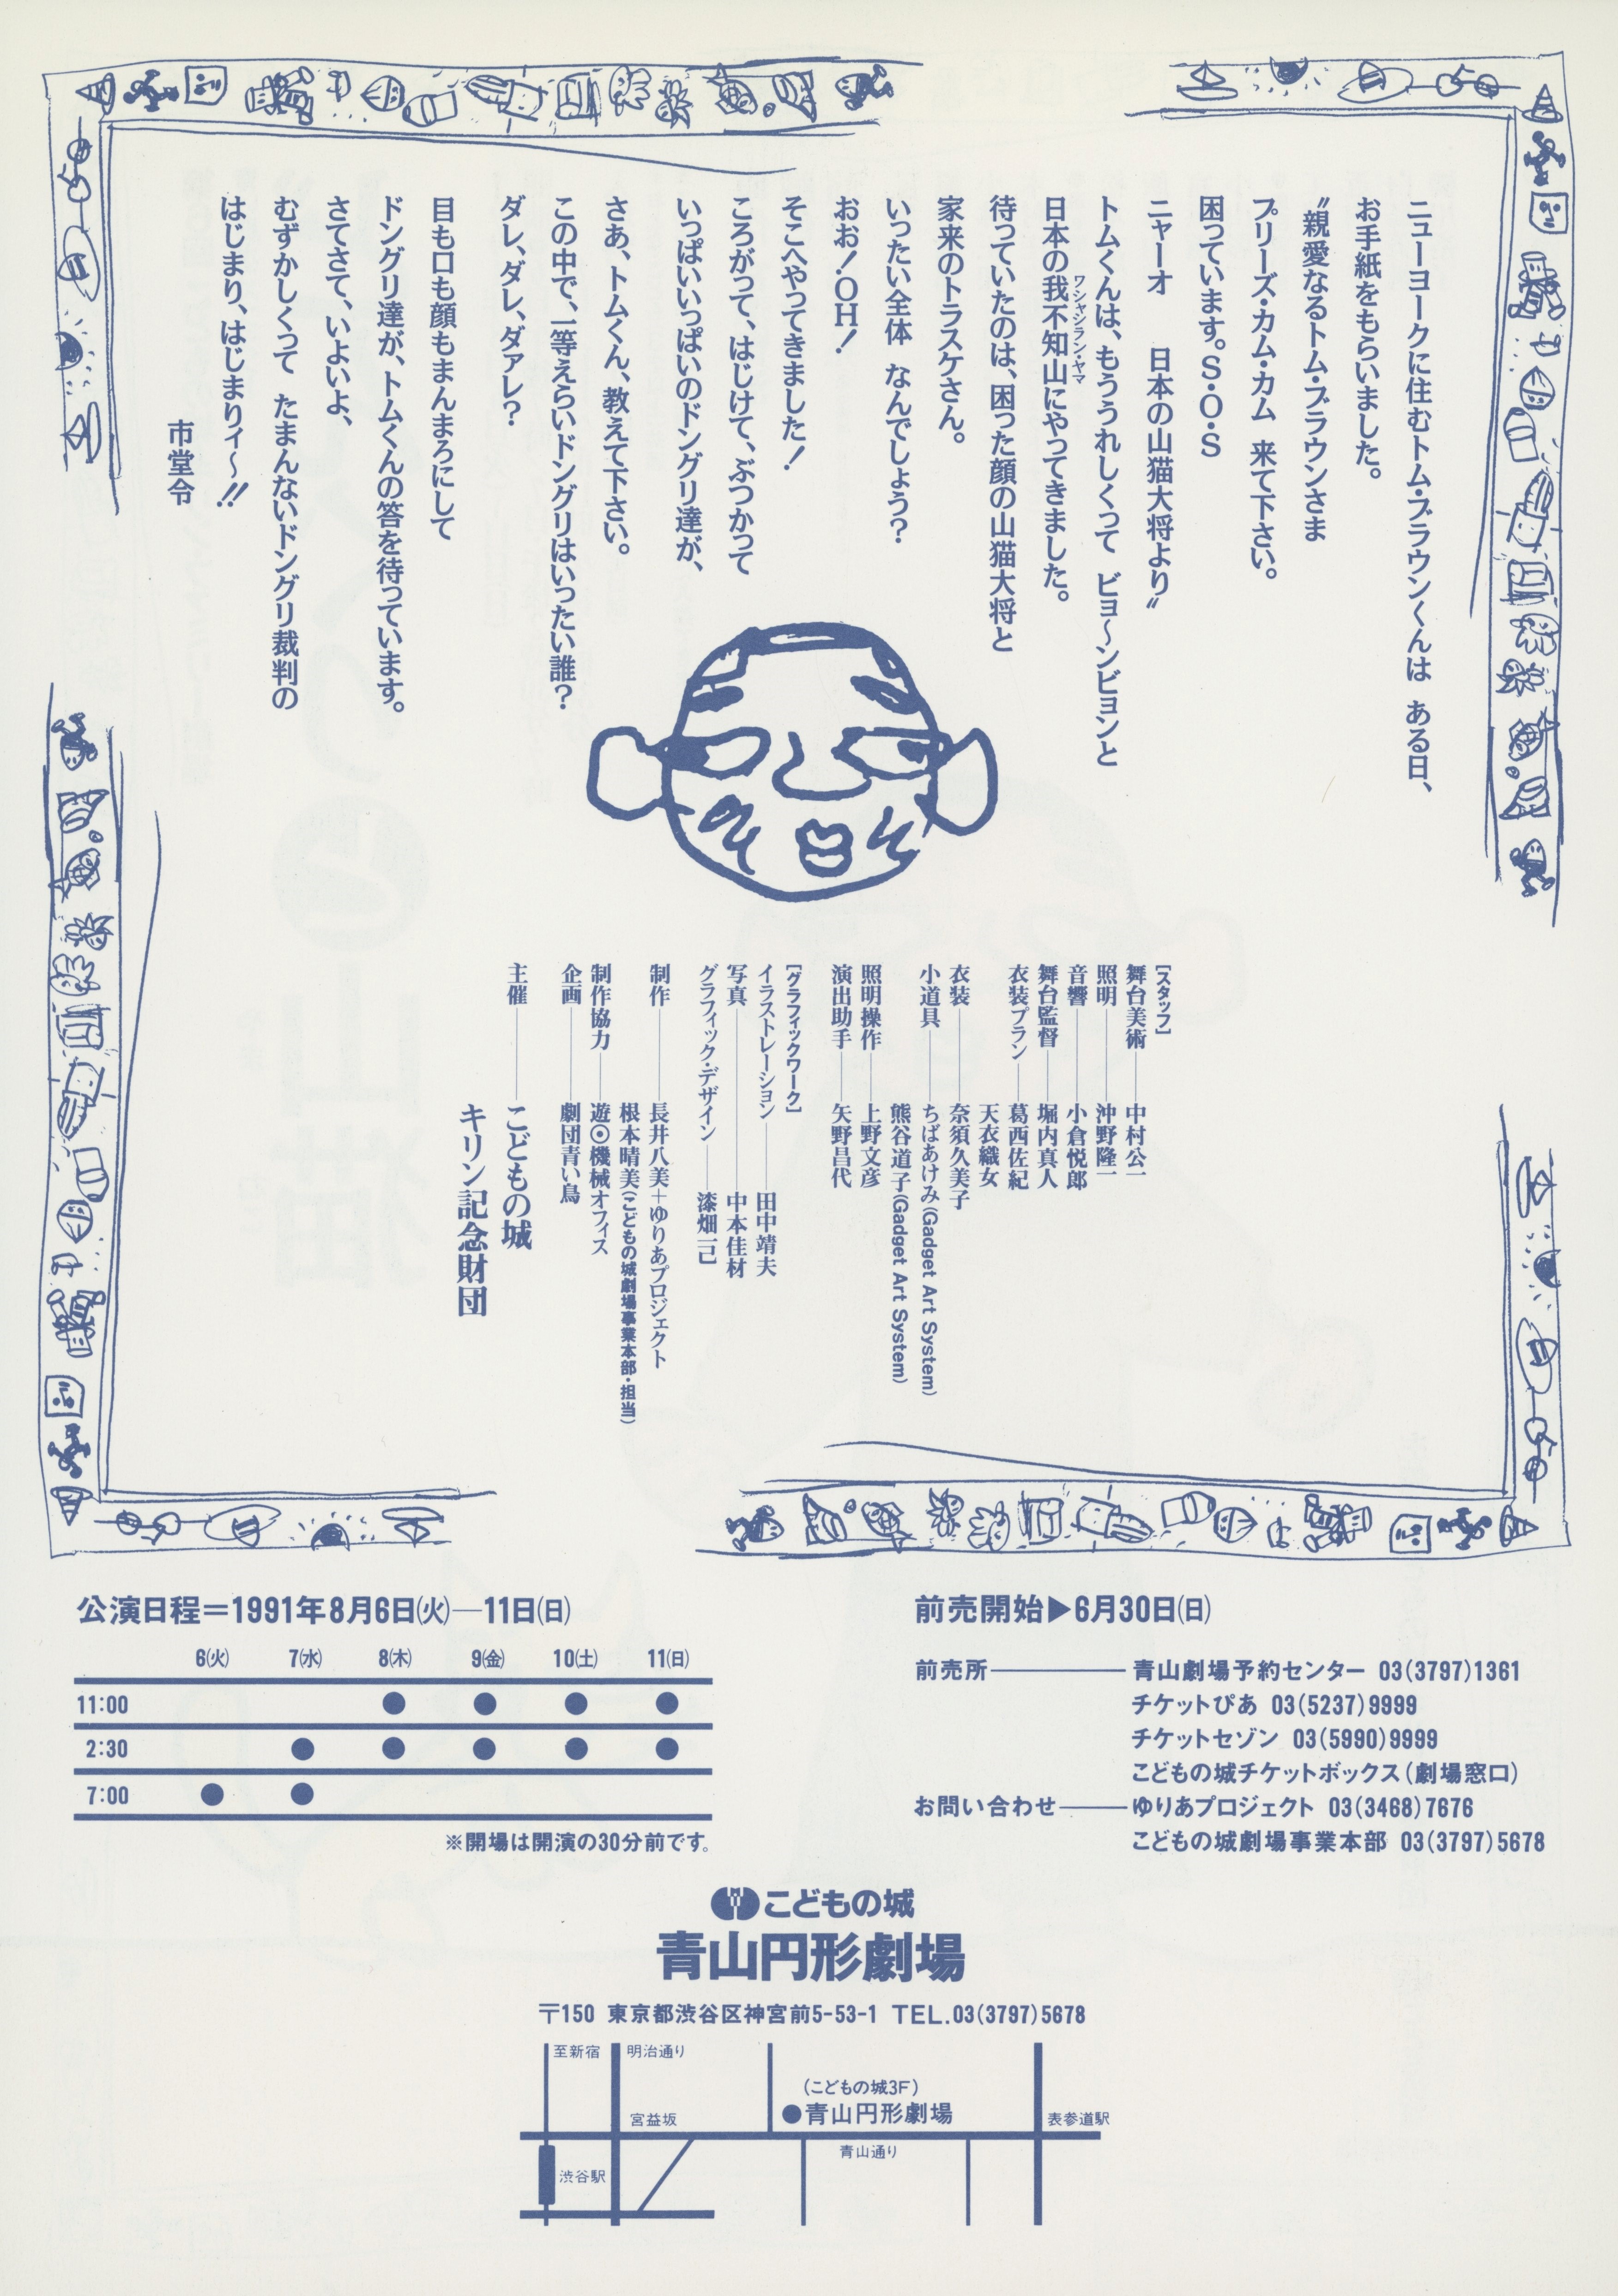 ニューヨークに住むトム・ブラウンくんは ある日、
お手紙をもらいました。
〝親愛なるトム・ブラウンさま
プリーズ・カム・カム 来て下さい。
困っています。S・O・S
ニャーオ 日本の山猫大将より〟
トムくんは、もううれしくって ビョ〜ンビョンと
日本の我不知山にやってきました。
ワシャシラン・ヤマ
待っていたのは、困った顔の山猫大将と
家来のトラスケさん。
いったい全体 なんでしょう？
おお！OH！
そこへやってきました！
ころがって、はじけて、ぶつかって
いっぱいいっぱいのドングリ達が、
さあ、トムくん、教えて下さい。
この中で、一等えらいドングリはいったい誰？
ダレ、ダレ、ダァレ？
目も口も顔もまんまろにして
ドングリ達が、トムくんの答を待っています。
さてさて、いよいよ、
むずかしくって たまんないドングリ裁判の
はじまり、はじまりィ〜!!
市堂令
［スタッフ］
舞台美術 中村公一
照明 沖野隆一
音響 小倉悦郎
舞台監督 堀内真人
衣装プラン 葛西佐紀
天衣織女
衣装 奈須久美子
小道具 ちばあけみ(Gadget Art System)
熊谷道子(Gadget Art System)
照明操作 上野文彦
演出助手 矢野昌代
［グラフィックワーク］
イラストレーション 田中靖夫
写真 中本佳材
グラフィック・デザイン 漆畑一己
制作 長井八美＋ゆりあプロジェクト
根本晴美(こどもの城劇場事業本部・担当)
制作協力 遊◉機械オフィス
企画 劇団青い鳥
主催 こどもの城
キリン記念財団
公演日程＝1991年8月6日(火)—11日(日)
6(火) 7(水) 8(木) 9(金) 10(土) 11(日)
11:00 ● ● ● ●
2:30 ● ● ● ● ●
7:00 ● ●
※開場は開演の30分前です。
前売開始▶6月30日(日)
前売所 青山劇場予約センター 03(3797)1361
チケットぴあ 03(5237)9999
チケットセゾン 03(5990)9999
こどもの城チケットボックス(劇場窓口)
お問い合わせ ゆりあプロジェクト 03(3468)7676
こどもの城劇場事業本部 03(3797)5678
こどもの城
青山円形劇場
〒150 東京都渋谷区神宮前5-53-1 TEL.03(3797)5678
至新宿 明治通り
(こどもの城3F)
宮益坂 ●青山円形劇場 表参道駅
青山通り
渋谷駅